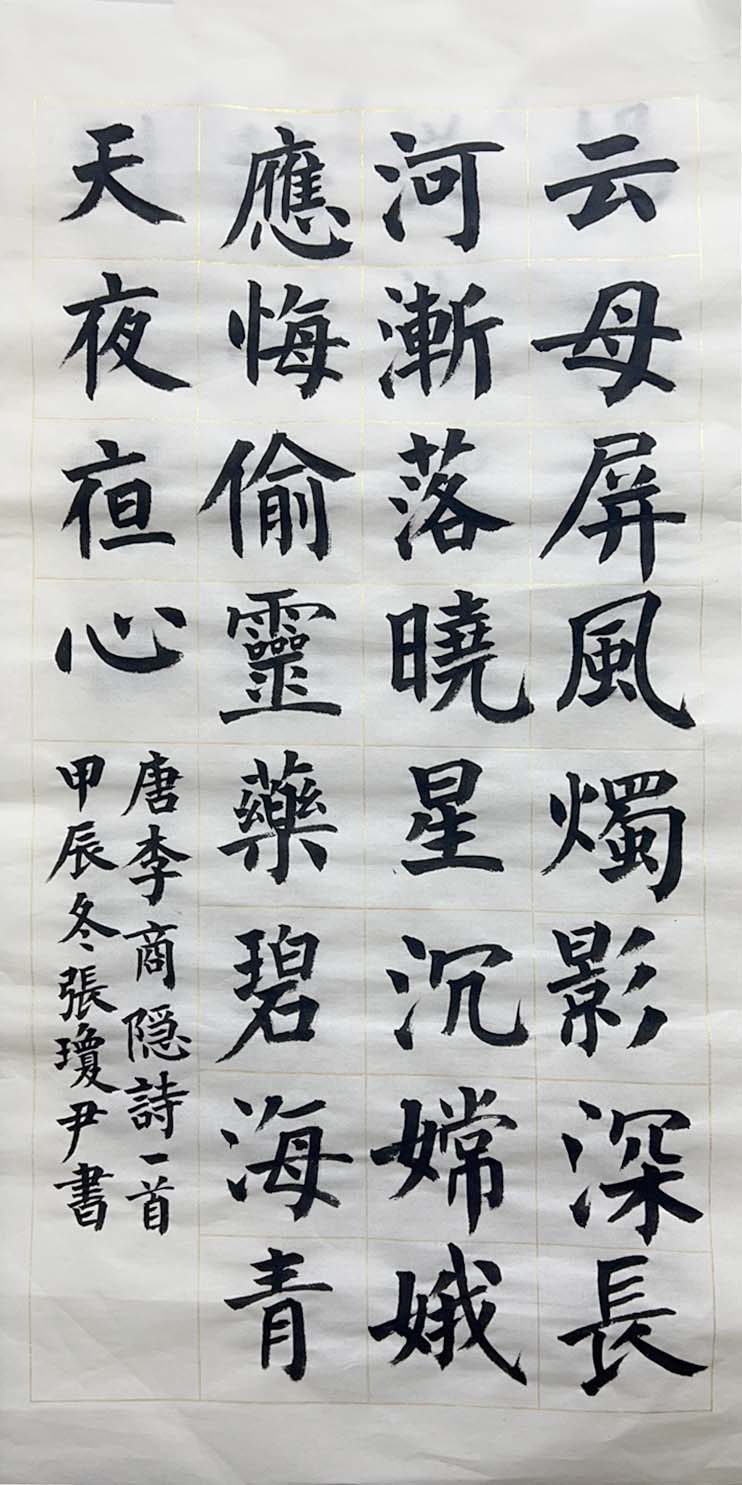 云母屏風燭影深長
河漸落曉星沉嫦娥
應悔偷靈藥碧海青
天夜夜心
唐李商隐詩一首
甲辰冬張瓊尹書